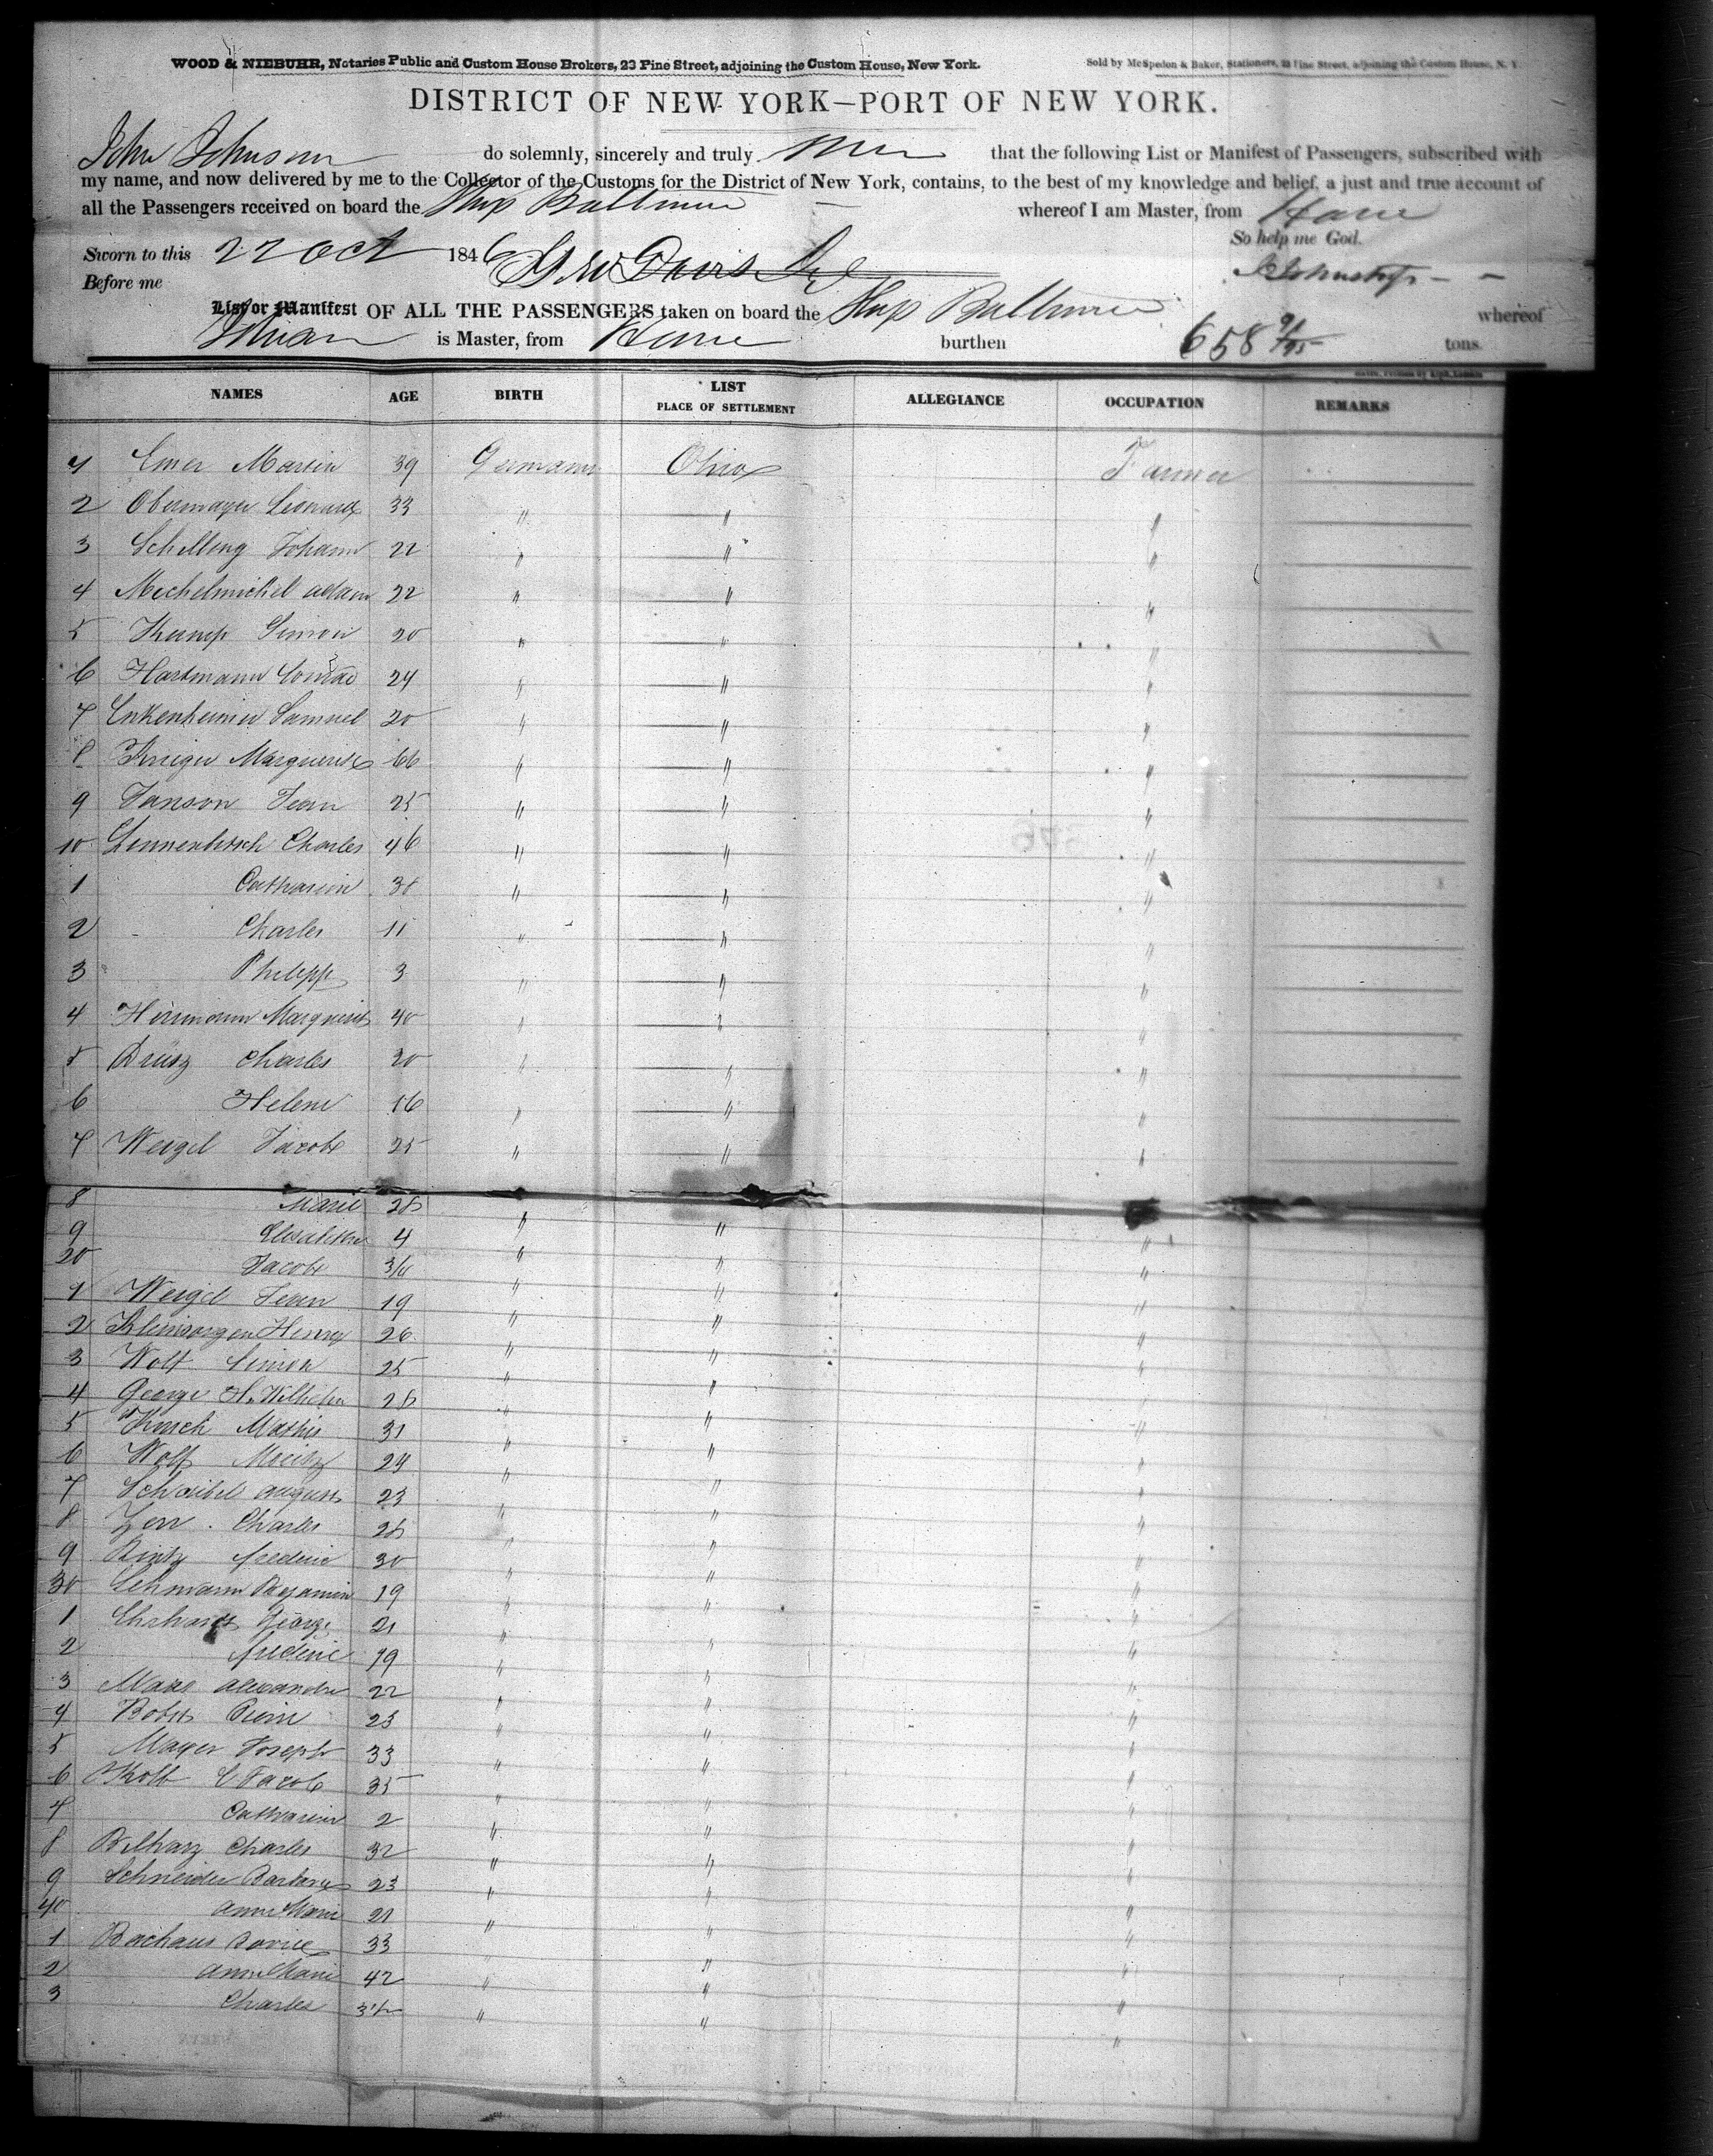 WOOD & NIEBUHR, Notaries Public and Custom House Brokers, 23 Pine Street, adjoining the Custom House, New York.
Sold by McSpedon & Baker, Stationers, 25 Pine Street, adjoining the Custom House, N. Y.
DISTRICT OF NEW YORK—PORT OF NEW YORK.
John Johnson do solemnly, sincerely and truly that the following List or Manifest of Passengers, subscribed with
my name, and now delivered by me to the Collector of the Customs for the District of New York, contains, to the best of my knowledge and belief, a just and true account of
all the Passengers received on board the Ship Baltimore whereof I am Master, from Havre
So help me God.
Sworn to this 22 Oct 1846
Before me
List or Manifest OF ALL THE PASSENGERS taken on board the Ship Baltimore whereof
is Master, from Havre burthen 658 91/95 tons.
NAMES AGE BIRTH LIST PLACE OF SETTLEMENT ALLEGIANCE OCCUPATION REMARKS
1 Martin 39 Germann Ohio Farmer
2 Obermayer Leonard 33 " " "
3 Schilling Johann 22 " " "
4 Mechelmichel Adam 22 " " "
5 Kump Simon 20 " " "
6 Hartmann Conrad 24 " " "
7 Enkenheimer Samuel 20 " " "
8 Krieger Marguerite 66 " " "
9 Janson Jean 25 " " "
10 Charles 46 " " "
1 Catharine 38 " " "
2 Charles 11 " " "
3 Philipp 3 " " "
4 Herrmann Marguerite 40 " " "
5 Charles 20 " " "
6 Helene 16 " " "
7 Weigel Jacob 25 " " "
8 Marie 28 " " "
9 Elisabeth 4 " " "
20 Jacob " " "
1 Weigel Jean 19 " " "
2 Kleinsorgen Henry 26 " " "
3 Wolf Simon 25 " " "
4 George H. Wilhelm 28 " " "
5 Mathis 31 " " "
6 Wolf Moritz 24 " " "
7 Schaibel August 23 " " "
8 Zerr Charles 28 " " "
9 Frederic 30 " " "
30 Lehmann Benjamin 19 " " "
1 Ehrhardt George 21 " " "
2 frederic 19 " " "
3 Alexandre 22 " " "
4 Pierre 23 " " "
5 Mayer Joseph 33 " " "
6 Kolb Jacob 35 " " "
7 Catharine 2 " " "
8 Bilharz Charles 32 " " "
9 Schneider Barbara 23 " " "
40 Anne Marie 21 " " "
1 Bachaus 33 " " "
2 Anne Marie 42 " " "
3 Charles " " "